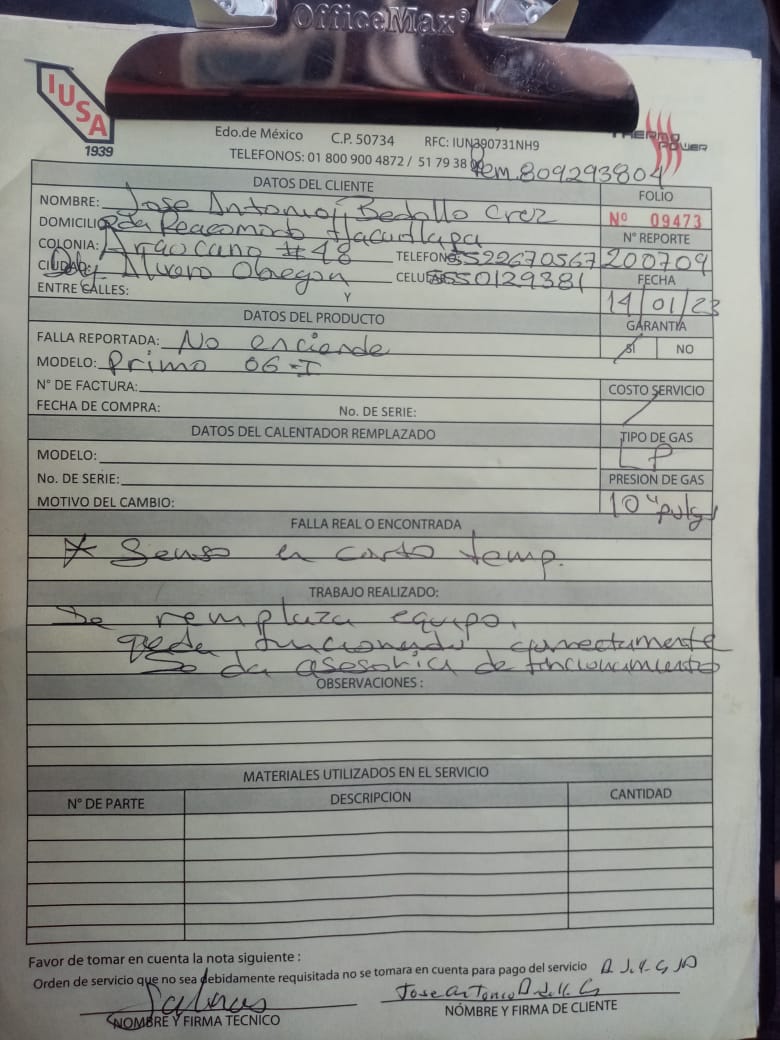 OfficeMax®
IUSA
1939
Edo.de México C.P. 50734 RFC: IUN390731NH9
THERMO POWER
TELEFONOS: 01 800 900 4872 / 51 79 38
Rem.809293804
DATOS DEL CLIENTE
FOLIO
NOMBRE: Jose Antonio Bedollo Cruz
Nº 09473
DOMICILIO: Reacomodo
Nº REPORTE
COLONIA: #48
TELEFONO: 5522670567 200709
CIUDAD: Alvaro Obregon CELULAR: 5550129381
FECHA
ENTRE CALLES: Y
14/01/23
DATOS DEL PRODUCTO
GARANTIA
FALLA REPORTADA: No enciende
SI NO
MODELO: Primo 06-I
N° DE FACTURA:
COSTO SERVICIO
FECHA DE COMPRA: No. DE SERIE:
DATOS DEL CALENTADOR REMPLAZADO
TIPO DE GAS
MODELO:
LP
No. DE SERIE:
PRESION DE GAS
MOTIVO DEL CAMBIO:
10" pulg
FALLA REAL O ENCONTRADA
* Senso en corto temp.
TRABAJO REALIZADO:
Se remplaza equipo.
queda funcionando correctamente
Se da asesoria de funcionamiento
OBSERVACIONES :
MATERIALES UTILIZADOS EN EL SERVICIO
N° DE PARTE DESCRIPCION CANTIDAD
Favor de tomar en cuenta la nota siguiente :
Orden de servicio que no sea debidamente requisitada no se tomara en cuenta para pago del servicio
Jose Antonio
NOMBRE Y FIRMA TECNICO NÓMBRE Y FIRMA DE CLIENTE